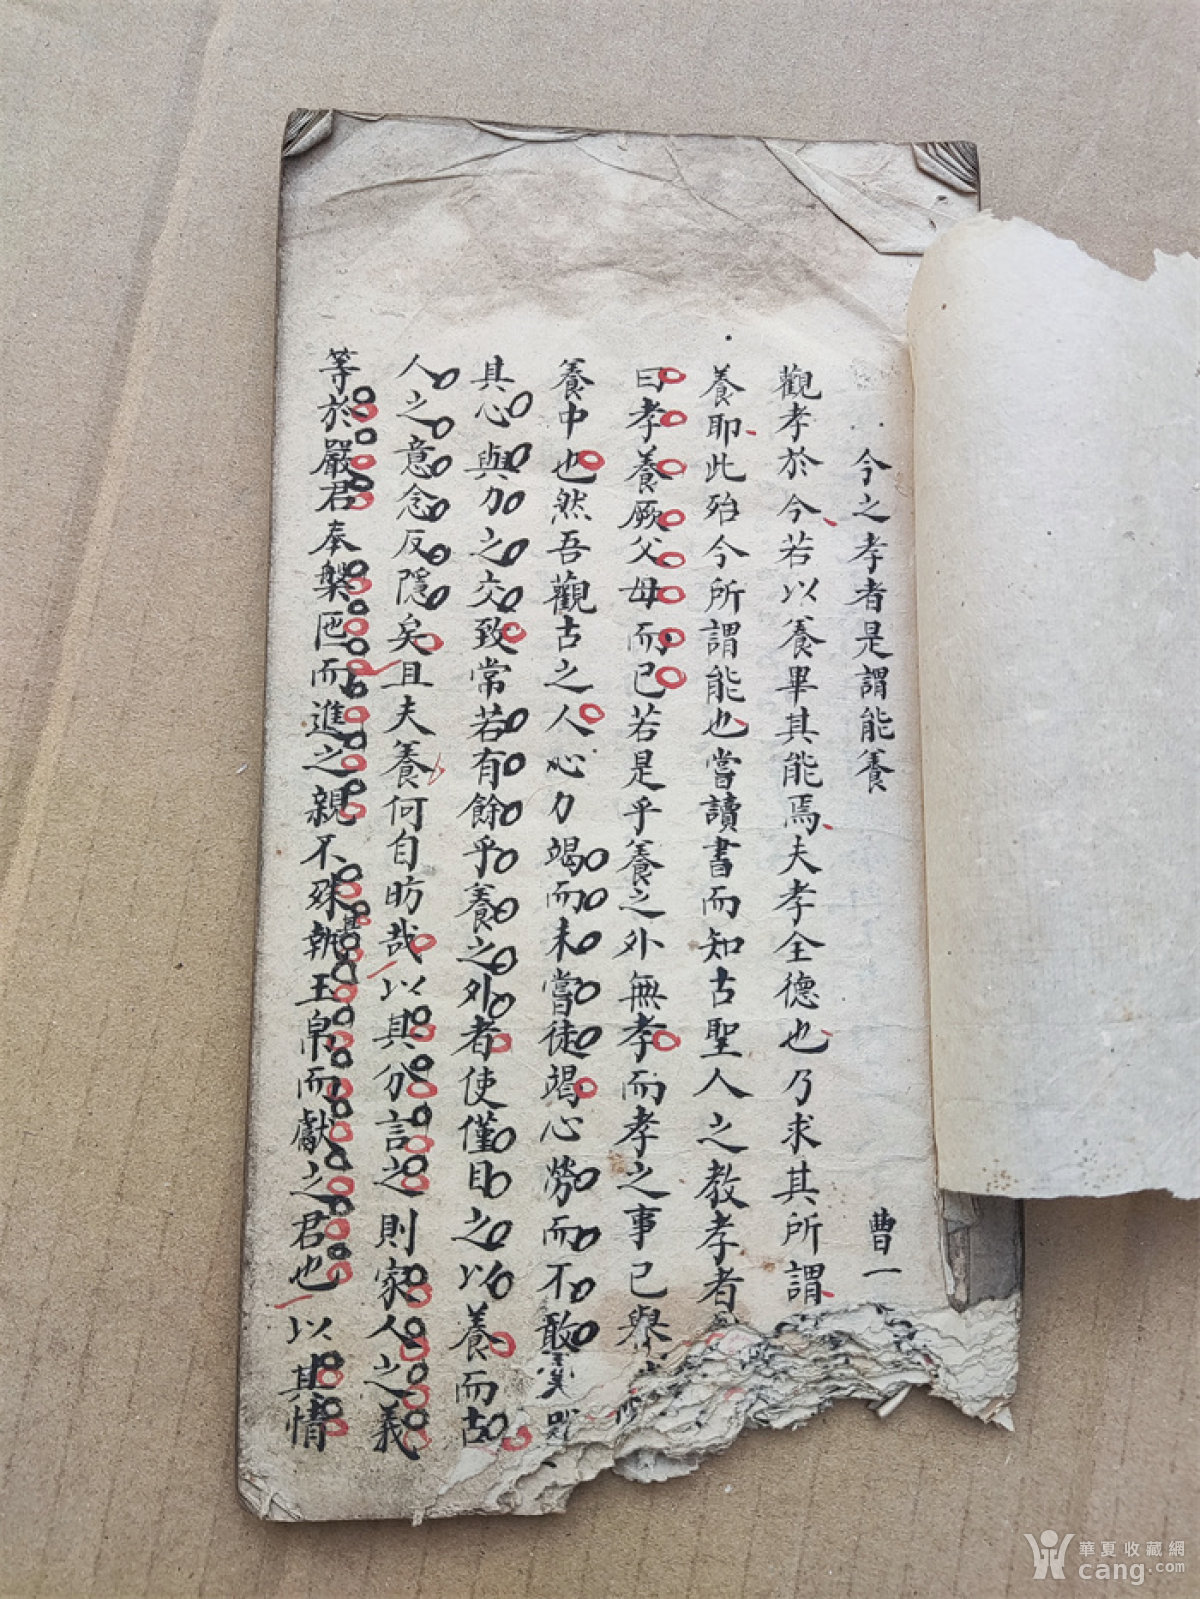 今之孝者是謂能養 曹一
觀孝於今若以養畢其能焉夫孝全德也乃求其所謂
養耶此殆今所謂能也嘗讀書而知古聖人之教孝者
曰孝養厥父母而已若是乎養之外無孝而孝之事已舉
養中也然吾觀古之人心力竭而未嘗徒竭心勞而不敢
其心與力之交致常若有餘乎養之外者使僅目之以養而古
人之意念反隱矣且夫養何自昉哉以其分言之則家人之義
等於嚴君奉槃匜而進之親不殊執玉帛而獻之君也以其情
華夏收藏網
cang.com